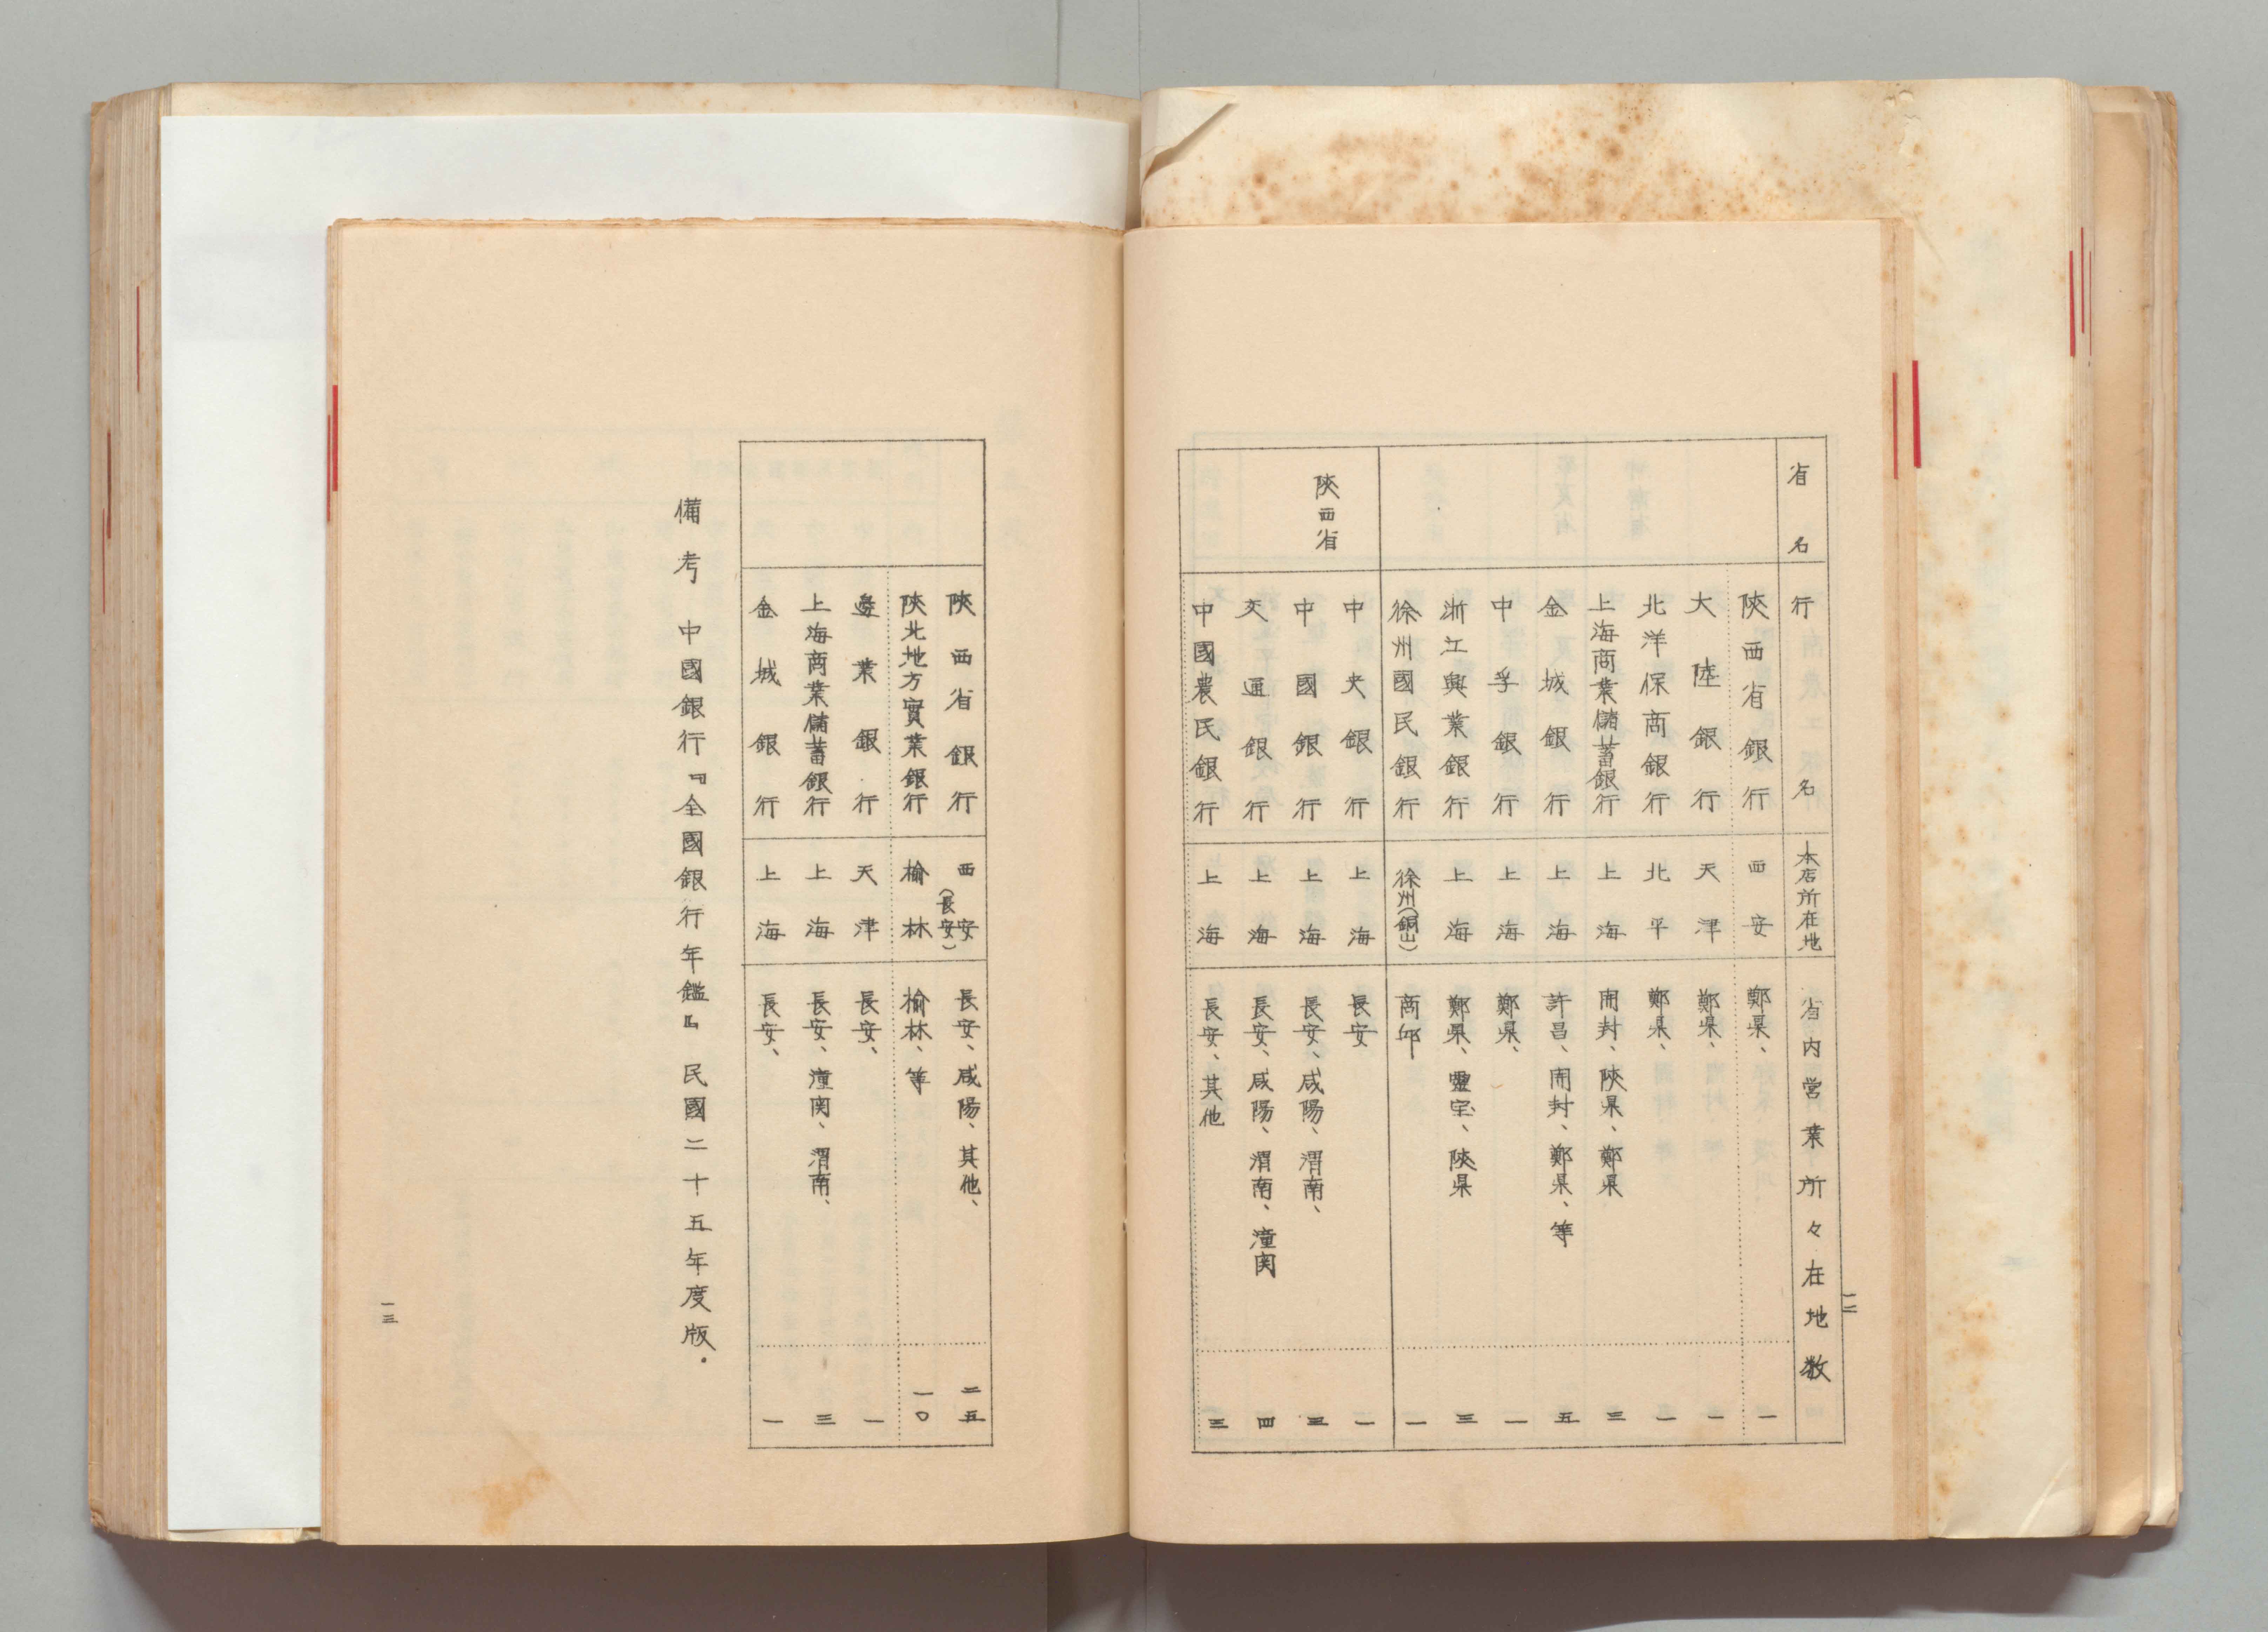 省名 行名 本店所在地 省内営業所々在地数
陝西省銀行 西安 鄭県、 一
大陸銀行 天津 鄭県、 一
北洋保商銀行 北平 鄭県、 一
上海商業儲蓄銀行 上海 開封、陝県、鄭県、 三
金城銀行 上海 許昌、開封、鄭県、等 五
中孚銀行 上海 鄭県、 一
浙江興業銀行 上海 鄭県、霊宝、陝県 三
徐州國民銀行 徐州(銅山) 商邱 一
陝西省
中央銀行 上海 長安 一
中國銀行 上海 長安、咸陽、渭南、 三
交通銀行 上海 長安、咸陽、渭南、潼関 四
中國農民銀行 上海 長安、其他 三
一二
陝西省銀行 西安(長安) 長安、咸陽、其他、 二五
陝北地方實業銀行 榆林 榆林、等 一〇
邊業銀行 天津 長安、 一
上海商業儲蓄銀行 上海 長安、潼関、渭南、 三
金城銀行 上海 長安、 一
備考 中國銀行『全國銀行年鑑』民國二十五年度版.
一三